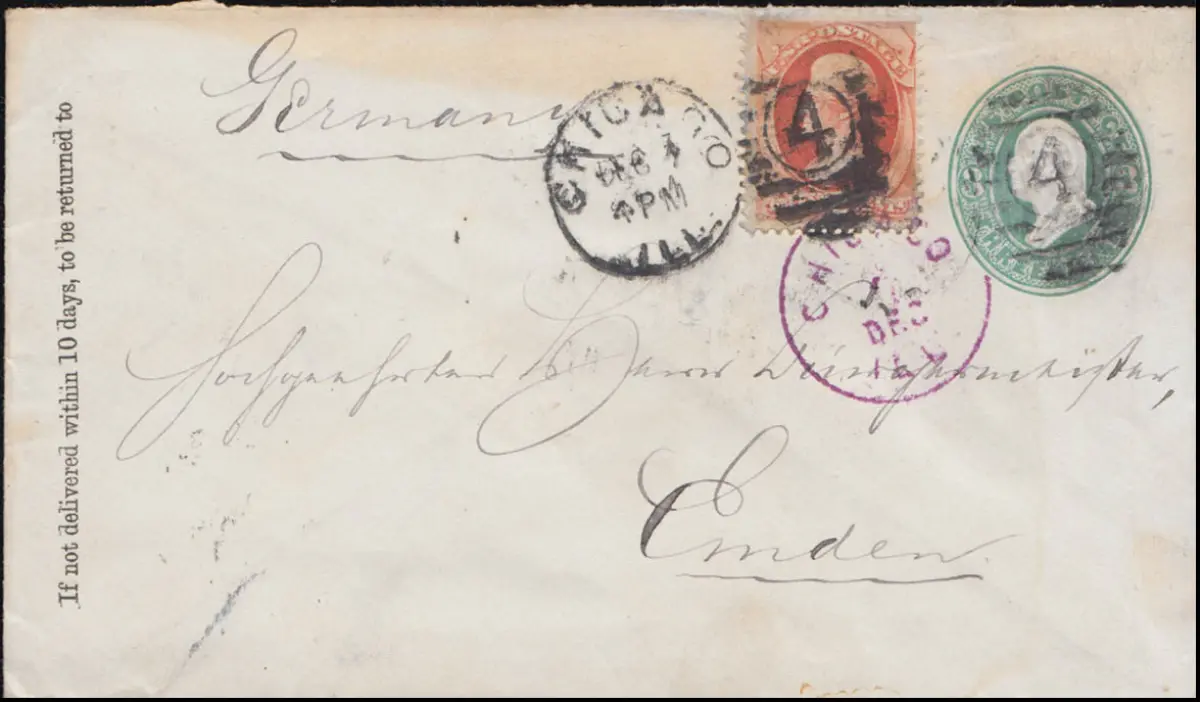 If not delivered within 10 days, to be returned to
Germany
CHICAGO
DEC 4
4 PM
ILL.
U.S. POSTAGE
4
4
CHICAGO
DEC
Hochgeehrter Herrn Bürgermeister,
Emden